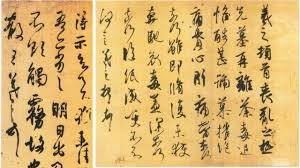 羲之頓首喪亂之極
先墓再離荼毒追
惟酷甚號慕摧絕
痛貫心肝痛當奈何
奈何雖即脩復未獲
奔馳哀毒益深奈何
奈何臨紙感哽不知
得示知足下猶未佳
吾亦劣明日出乃行
不欲觸霧故也
散王羲之頓首